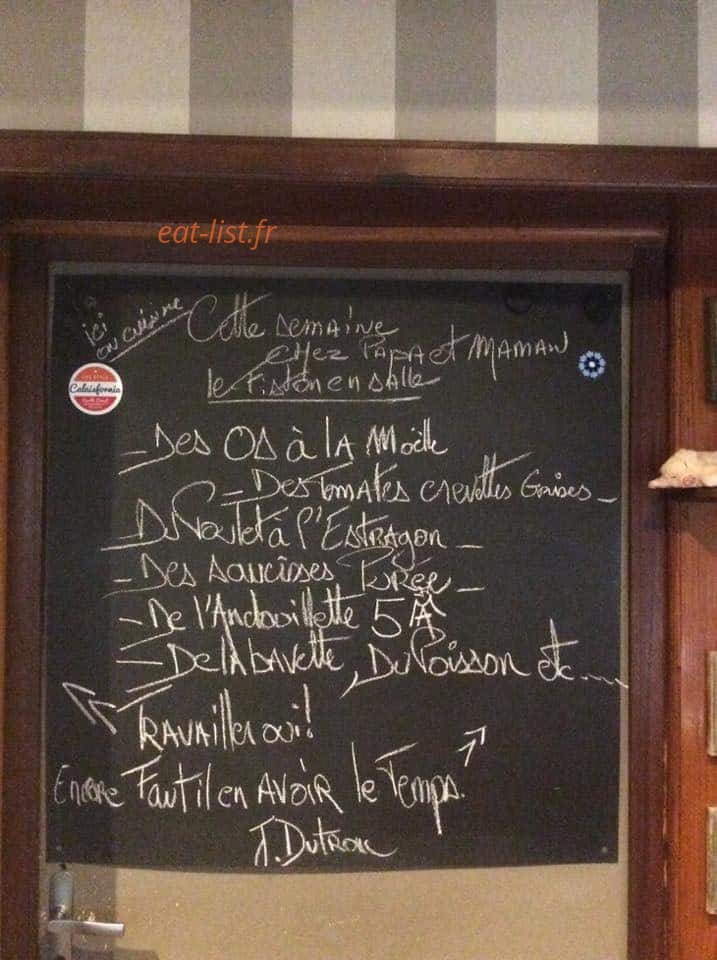 eat-list.fr
ici
on cuisine
Cette semaine
CHEZ PAPA et MAMAN
le Fiston en salle
Calaisfornia
- Des OS à lA Moëlle
- Des Tomates crevettes Grises -
- Du Poulet à l'ESTRAGON -
- Des saucisses Purée -
- De l'Andouillette 5 A
- De lA bavette, Du Poisson etc....
TRAVAiller oui!
Encore Faut il en AVOIR le Temps.
J. Dutronc